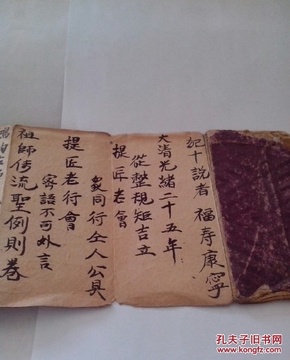 紀十説者 福寿康寧
大清光緒二十五年
從整規短吉立
提匠老會
衆同行仝人公具
提匠老行會
密語不可外言
祖師傳流聖例則卷
孔夫子旧书网